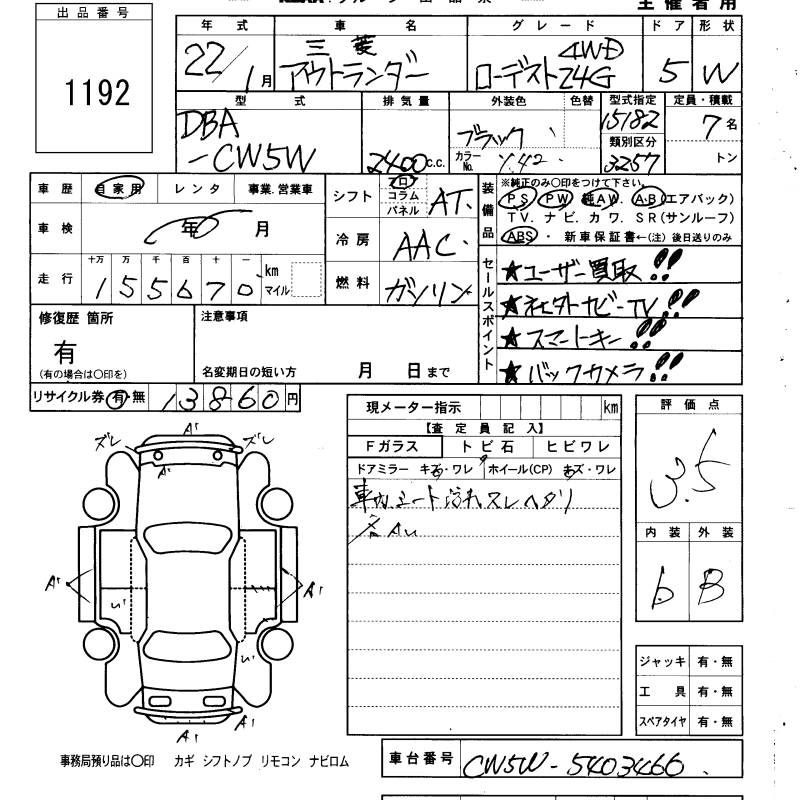 主催者用
出品番号
1192
年式 車名 グレード ドア 形状
22/1月 三菱 アウトランダー 4WD ローデスト24G 5 W
型式 排気量 外装色 色替 型式指定 定員・積載
DBA-CW5W 2400c.c. ブラック 15182 7名
カラーNo. X42 類別区分 3257 トン
車歴 自家用 レンタ 事業.営業車
車検 年 月
走行 十万 万 千 百 十 一
155670 km マイル
シフト フロ コラム パネル AT.
冷房 AAC
燃料 ガソリン
装備品
※純正のみ〇印をつけて下さい。
PS PW 純AW. A.B(エアバック)
TV. ナビ. カワ. SR(サンルーフ)
ABS・ 新車保証書←(注)後日送りのみ
セールスポイント
★ユーザー買取!!
★社外ナビーTV!!
★スマートキー!!
★バックカメラ!!
修復歴 箇所
有
(有の場合は〇印を)
注意事項
名変期日の短い方 月 日まで
リサイクル券 有・無 13860円
現メーター指示 km
【査定員記入】
Fガラス トビ石 ヒビワレ
ドアミラー キズ・ワレ ホイール(CP) キズ・ワレ
車内シート汚れスレヘタリ
各AU
評価点
3.5
内装 外装
b B
ジャッキ 有・無
工具 有・無
スペアタイヤ 有・無
ズレ A1 ズレ
A1
A1 U1 A1
U1
A1 A1
事務局預り品は〇印 カギ シフトノブ リモコン ナビロム
車台番号 CW5W-5403466